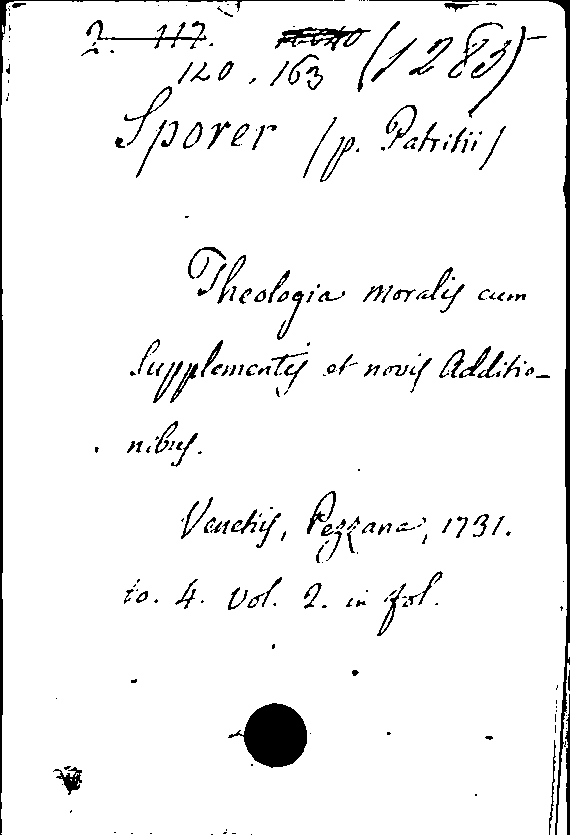 2. 117.
120. 163 (1283)
Sporer /p. Patritii/
Theologia moralis cum
Supplementis et novis Additio-
nibus.
Venetiis, Pezzana, 1731.
to. 4. Vol. 2. in fol.